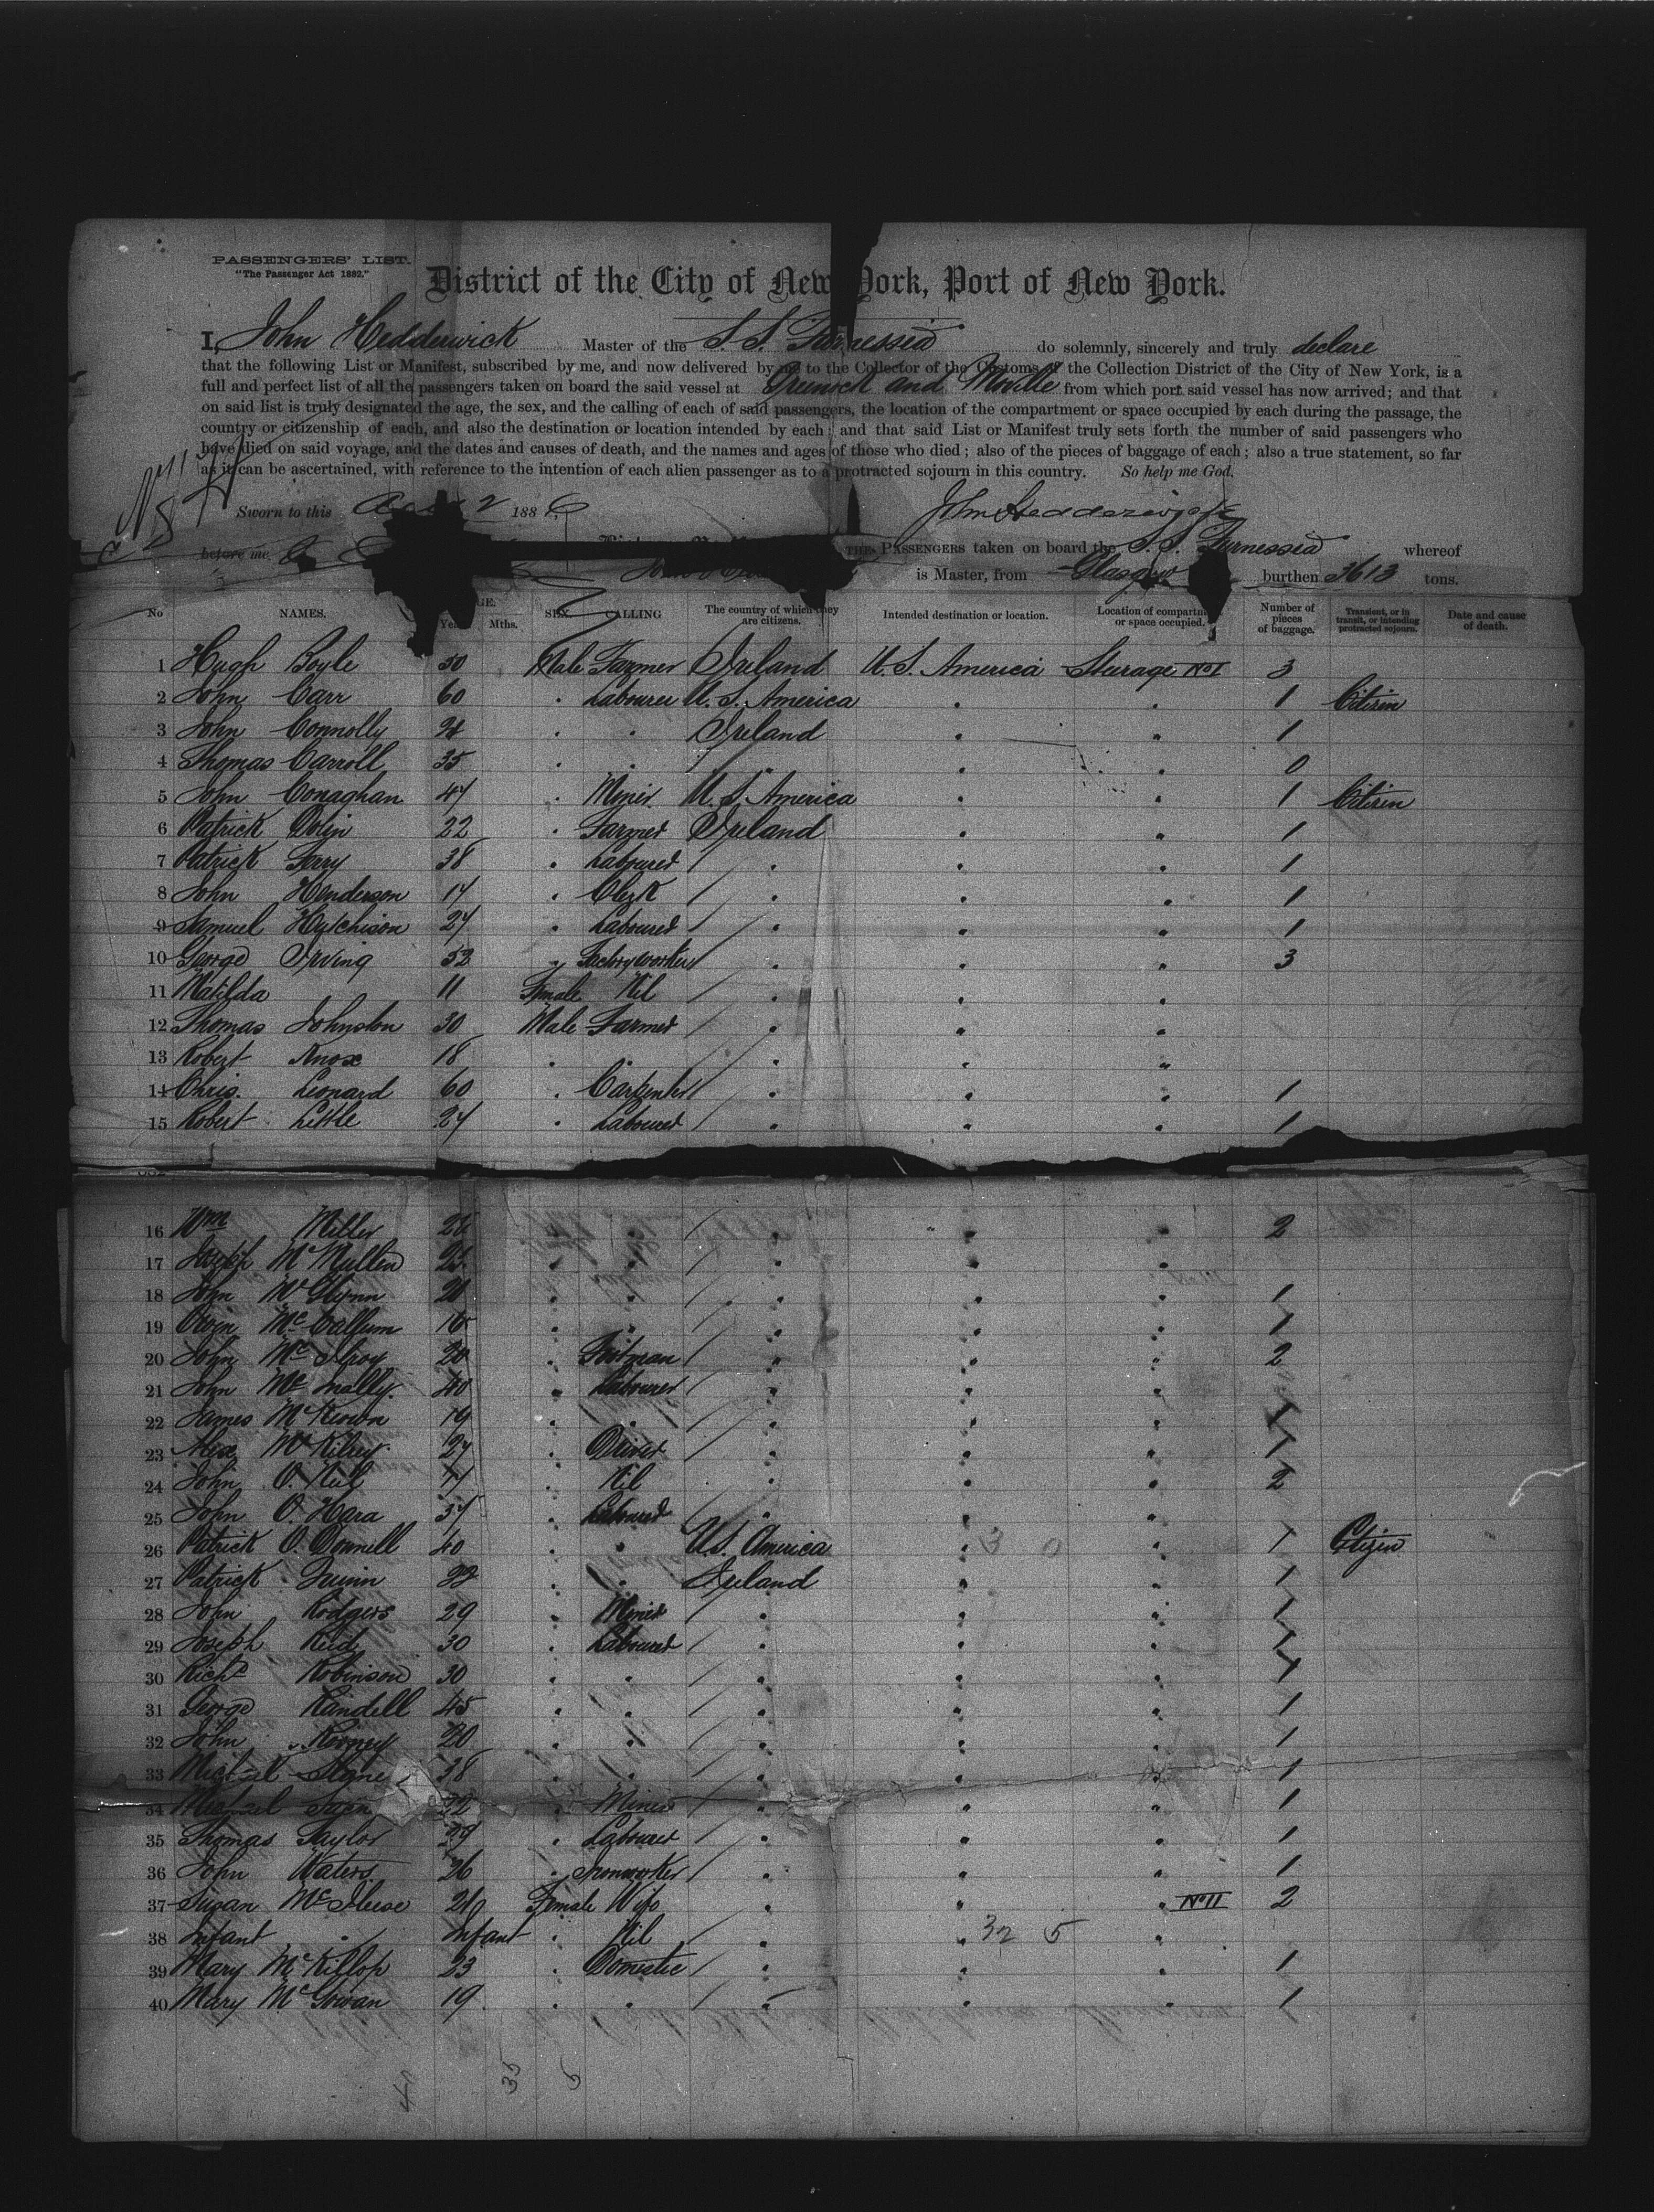 PASSENGERS' LIST.
"The Passenger Act 1882."
District of the City of New York, Port of New York.
I, John Hedderwick Master of the S.S. Furnessia do solemnly, sincerely and truly declare
that the following List or Manifest, subscribed by me, and now delivered by me to the Collector of the Customs of the Collection District of the City of New York, is a
full and perfect list of all the passengers taken on board the said vessel at Greenock and Moville from which port said vessel has now arrived; and that
on said list is truly designated the age, the sex, and the calling of each of said passengers, the location of the compartment or space occupied by each during the passage, the
country or citizenship of each, and also the destination or location intended by each; and that said List or Manifest truly sets forth the number of said passengers who
have died on said voyage, and the dates and causes of death, and the names and ages of those who died; also of the pieces of baggage of each; also a true statement, so far
as it can be ascertained, with reference to the intention of each alien passenger as to a protracted sojourn in this country. So help me God.
Sworn to this 2 1886 John Hedderwick
before me THE PASSENGERS taken on board the S.S. Furnessia whereof
is Master, from Glasgow burthen 3613 tons.
No NAMES. Mths. SEX. CALLING The country of which they are citizens. Intended destination or location. Location of compartment or space occupied. Number of pieces of baggage. Transient, or in transit, or intending protracted sojourn. Date and cause of death.
1 Hugh Boyle 50 Male Farmer Ireland U.S. America Steerage No I 3
2 John Carr 60 " Labourer U.S. America " " 1 Citizen
3 John Connolly " " Ireland " " 1
4 Thomas Carroll 35 " " " " " 0
5 John Conaghan 47 " Miner U.S. America " " 1 Citizen
6 Patrick 22 " Farmer Ireland " " 1
7 Patrick Ferry 38 " Labourer " " " 1
8 John Henderson 17 " Clerk " " " 1
9 Samuel Hutchison 27 " Labourer " " " 1
10 George Irving 52 " Factory worker " " " 3
11 Matilda 11 Female Nil " " "
12 Thomas Johnston 30 Male Farmer " " "
13 Robert Knox 18 " " " " "
14 Chris. Leonard 60 " Carpenter " " " 1
15 Robert Little 27 " Labourer " " " 1
16 Wm Miller " " " " " 2
17 Joseph McMullen " " " " "
18 John McGlynn " " " " " 1
19 Owen McCallum " " " " " 1
20 John McIlroy 20 " Footman " " " 2
21 John McInally 40 " Labourer " " "
22 James McKeown 19 " " " " " 1
23 Alex 27 " Driver " " " 1
24 John O.Neil " Nil " " " 2
25 John O.Hara 37 " Labourer " " "
26 Patrick O.Donnell 40 " " U.S. America " 3 0 " 1 Citizen
27 Patrick Quinn " " Ireland " " 1
28 John Rodgers 29 " Miner " " " 1
29 Joseph Reid 30 " Labourer " " " 1
30 Richd Robinson 30 " " " " " 1
31 George Randell 45 " " " " " 1
32 John Rooney 20 " " " " " 1
33 Michael 38 " " " " " 1
34 Michael 22 " Miner " " " 1
35 Thomas Taylor " Labourer " " " 1
36 John Waters 26 " Ironworker " " " 1
37 Susan Female Wife " " " No II 2
38 Infant " Infant " Nil " " 32 5 "
39 Mary McKillop 23 " Domestic " " " 1
40 Mary McGowan 19 " " " " " 1
40 35 5